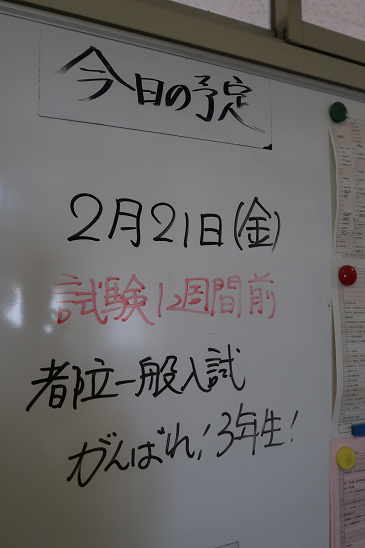 今日の予定
2月21日(金)
試験1週間前
都立一般入試
がんばれ!3年生!